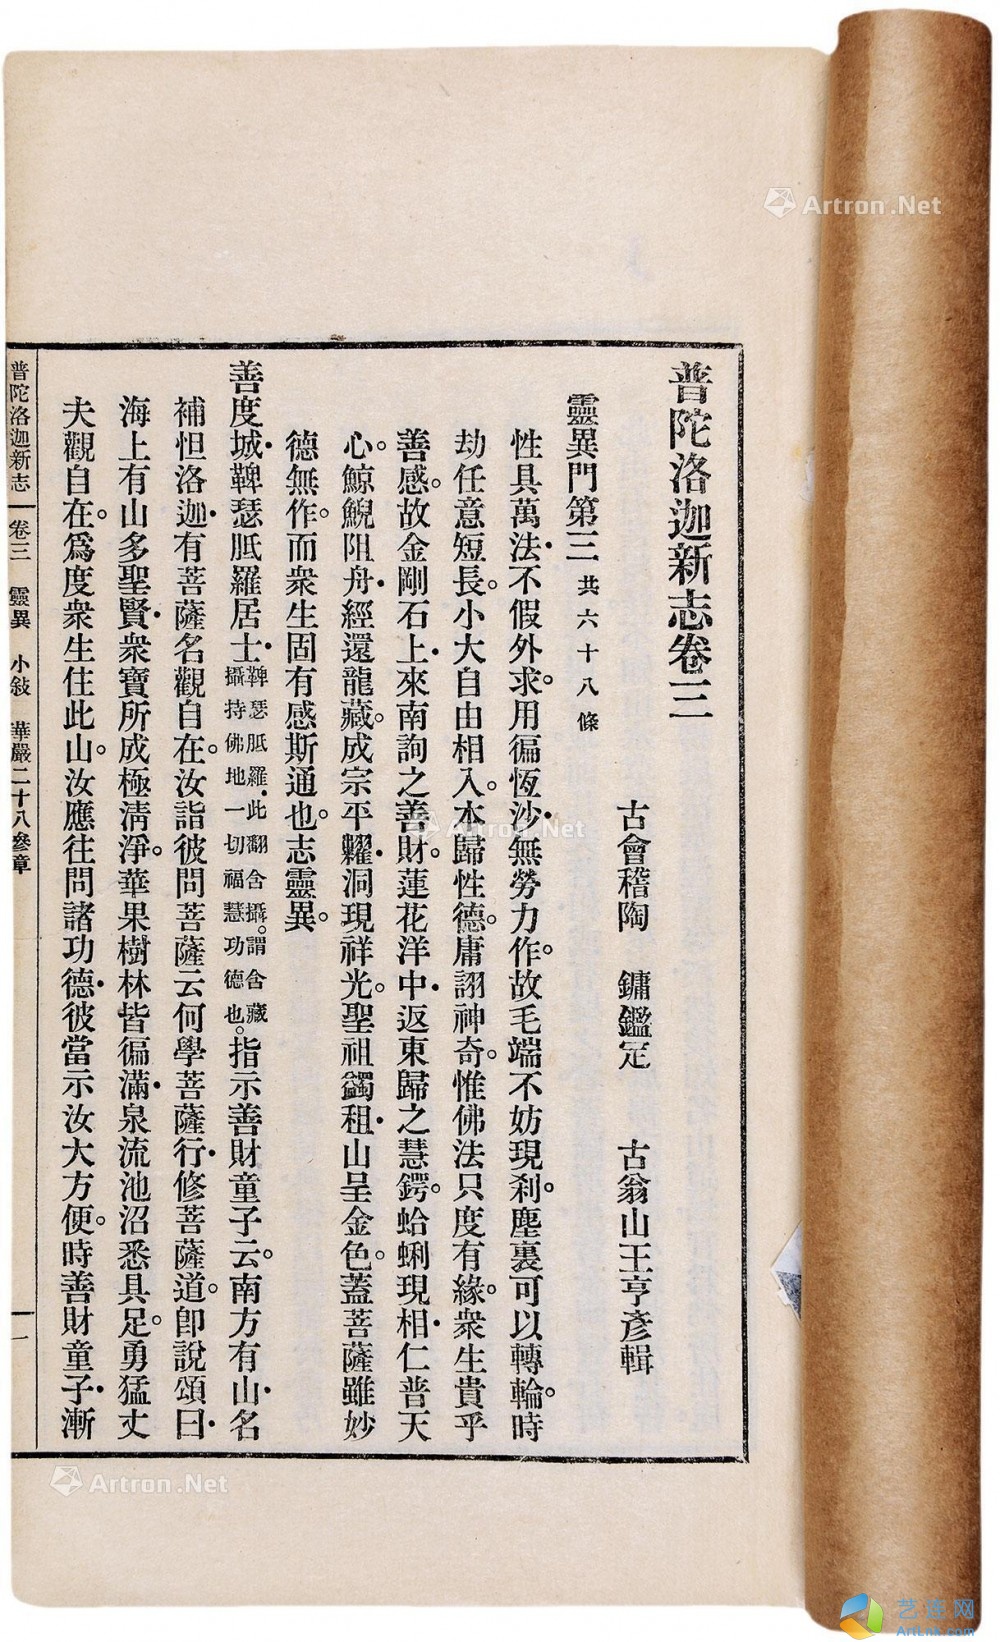 普陀洛迦新志卷三
古會稽陶　鏞鑑定　古翁山王亨彥輯
靈異門第三共六十八條
性具萬法·不假外求。用徧恆沙·無勞力作。故毛端不妨現剎。塵裏可以轉輪。時
劫任意短長。小大自由相入。本歸性德。庸詡神奇。惟佛法只度有緣。眾生貴乎
善感。故金剛石上·來南詢之善財。蓮花洋中·返東歸之慧鍔。蛤蜊現相·仁普天
心。鯨鯢阻舟·經還龍藏。成宗平糶·洞現祥光。聖祖蠲租·山呈金色。蓋菩薩雖妙
德無作。而眾生固有感斯通也。志靈異。
善度城·鞞瑟胝羅居士·鞞瑟胝羅·此翻含攝。謂含藏攝持佛地一切福慧功德也。指示善財童子云。南方有山·名
補怛洛迦·有菩薩名觀自在。汝詣彼問菩薩云何學菩薩行·修菩薩道。卽說頌曰·
海上有山多聖賢·眾寶所成極淸淨。華果樹林皆徧滿·泉流池沼悉具足。勇猛丈
夫觀自在。爲度眾生住此山。汝應往問諸功德·彼當示汝大方便。時善財童子·漸
普陀洛迦新志　卷三　靈異　小敍　華嚴二十八參章　一
Artron.Net
Artron.Net
Artron.Net
艺连网
ArtLnk.com